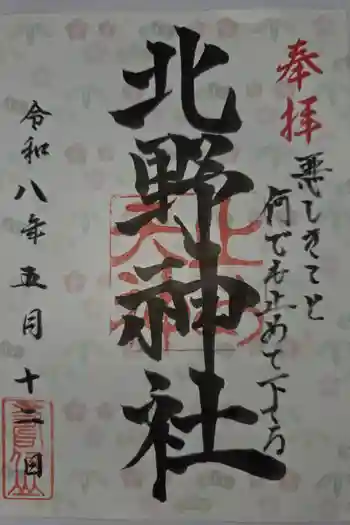 奉拝
悪しきこと
何でも止めて下さる
北野神社
令和八年五月十二日